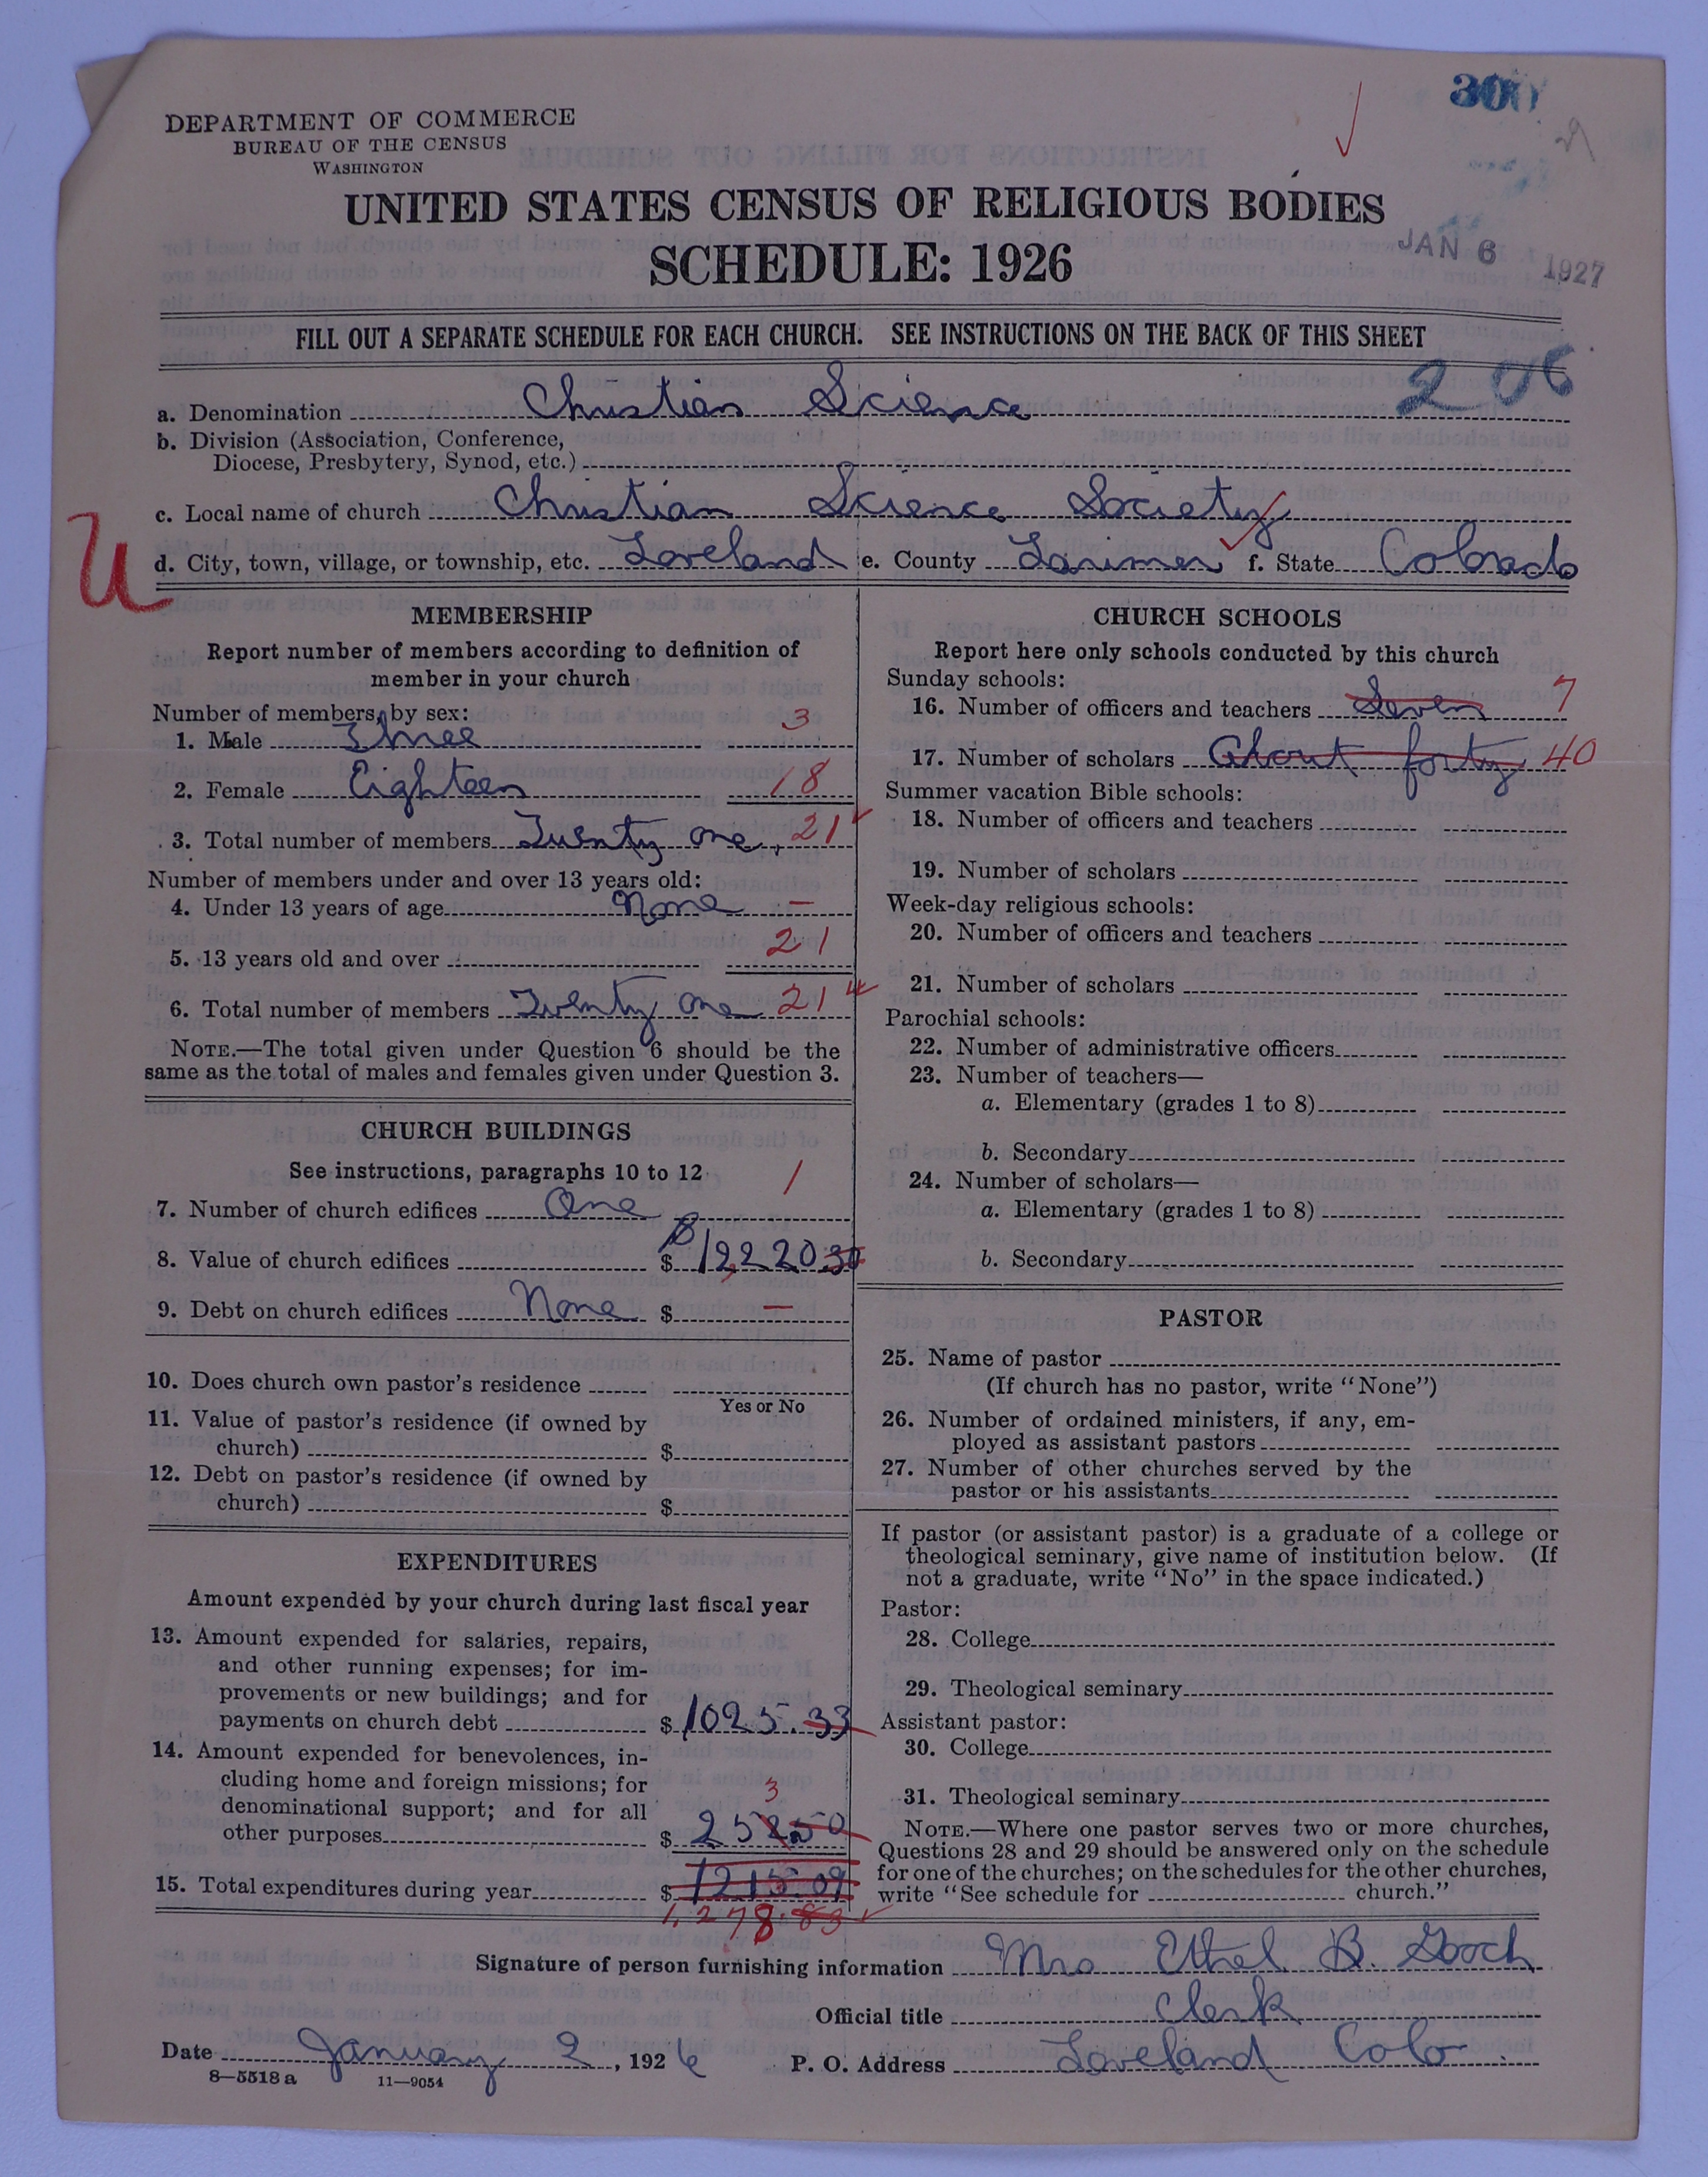 300
DEPARTMENT OF COMMERCE
BUREAU OF THE CENSUS
WASHINGTON
UNITED STATES CENSUS OF RELIGIOUS BODIES
SCHEDULE: 1926
JAN 6 1927
FILL OUT A SEPARATE SCHEDULE FOR EACH CHURCH. SEE INSTRUCTIONS ON THE BACK OF THIS SHEET
206
a. Denomination Christian Science
b. Division (Association, Conference,
Diocese, Presbytery, Synod, etc.)
c. Local name of church Christian Science Society
U
d. City, town, village, or township, etc. Loveland e. County Larimer f. State Colorado
MEMBERSHIP
Report number of members according to definition of
member in your church
Number of members, by sex:
1. Male Three 3
2. Female Eighteen 18
3. Total number of members Twenty one 21
Number of members under and over 13 years old:
4. Under 13 years of age None —
5. 13 years old and over 21
6. Total number of members Twenty one 21
NOTE.—The total given under Question 6 should be the
same as the total of males and females given under Question 3.
CHURCH BUILDINGS
See instructions, paragraphs 10 to 12
7. Number of church edifices One 1
8. Value of church edifices $ 12220.30
9. Debt on church edifices None $ —
10. Does church own pastor's residence
Yes or No
11. Value of pastor's residence (if owned by
church) $
12. Debt on pastor's residence (if owned by
church) $
EXPENDITURES
Amount expended by your church during last fiscal year
13. Amount expended for salaries, repairs,
and other running expenses; for im-
provements or new buildings; and for
payments on church debt $ 1025.33
14. Amount expended for benevolences, in-
cluding home and foreign missions; for
denominational support; and for all
3
other purposes $ 252.50
15. Total expenditures during year $ 1215.09
1,278.83
CHURCH SCHOOLS
Report here only schools conducted by this church
Sunday schools:
16. Number of officers and teachers Seven 7
17. Number of scholars About forty 40
Summer vacation Bible schools:
18. Number of officers and teachers
19. Number of scholars
Week-day religious schools:
20. Number of officers and teachers
21. Number of scholars
Parochial schools:
22. Number of administrative officers
23. Number of teachers—
a. Elementary (grades 1 to 8)
b. Secondary
24. Number of scholars—
a. Elementary (grades 1 to 8)
b. Secondary
PASTOR
25. Name of pastor
(If church has no pastor, write "None")
26. Number of ordained ministers, if any, em-
ployed as assistant pastors
27. Number of other churches served by the
pastor or his assistants
If pastor (or assistant pastor) is a graduate of a college or
theological seminary, give name of institution below. (If
not a graduate, write "No" in the space indicated.)
Pastor:
28. College
29. Theological seminary
Assistant pastor:
30. College
31. Theological seminary
NOTE.—Where one pastor serves two or more churches,
Questions 28 and 29 should be answered only on the schedule
for one of the churches; on the schedules for the other churches,
write "See schedule for church."
Signature of person furnishing information Mrs Ethel B. Gooch
Official title Clerk
Date January 2, 1926 P. O. Address Loveland Colo.
8—5518 a 11—9054